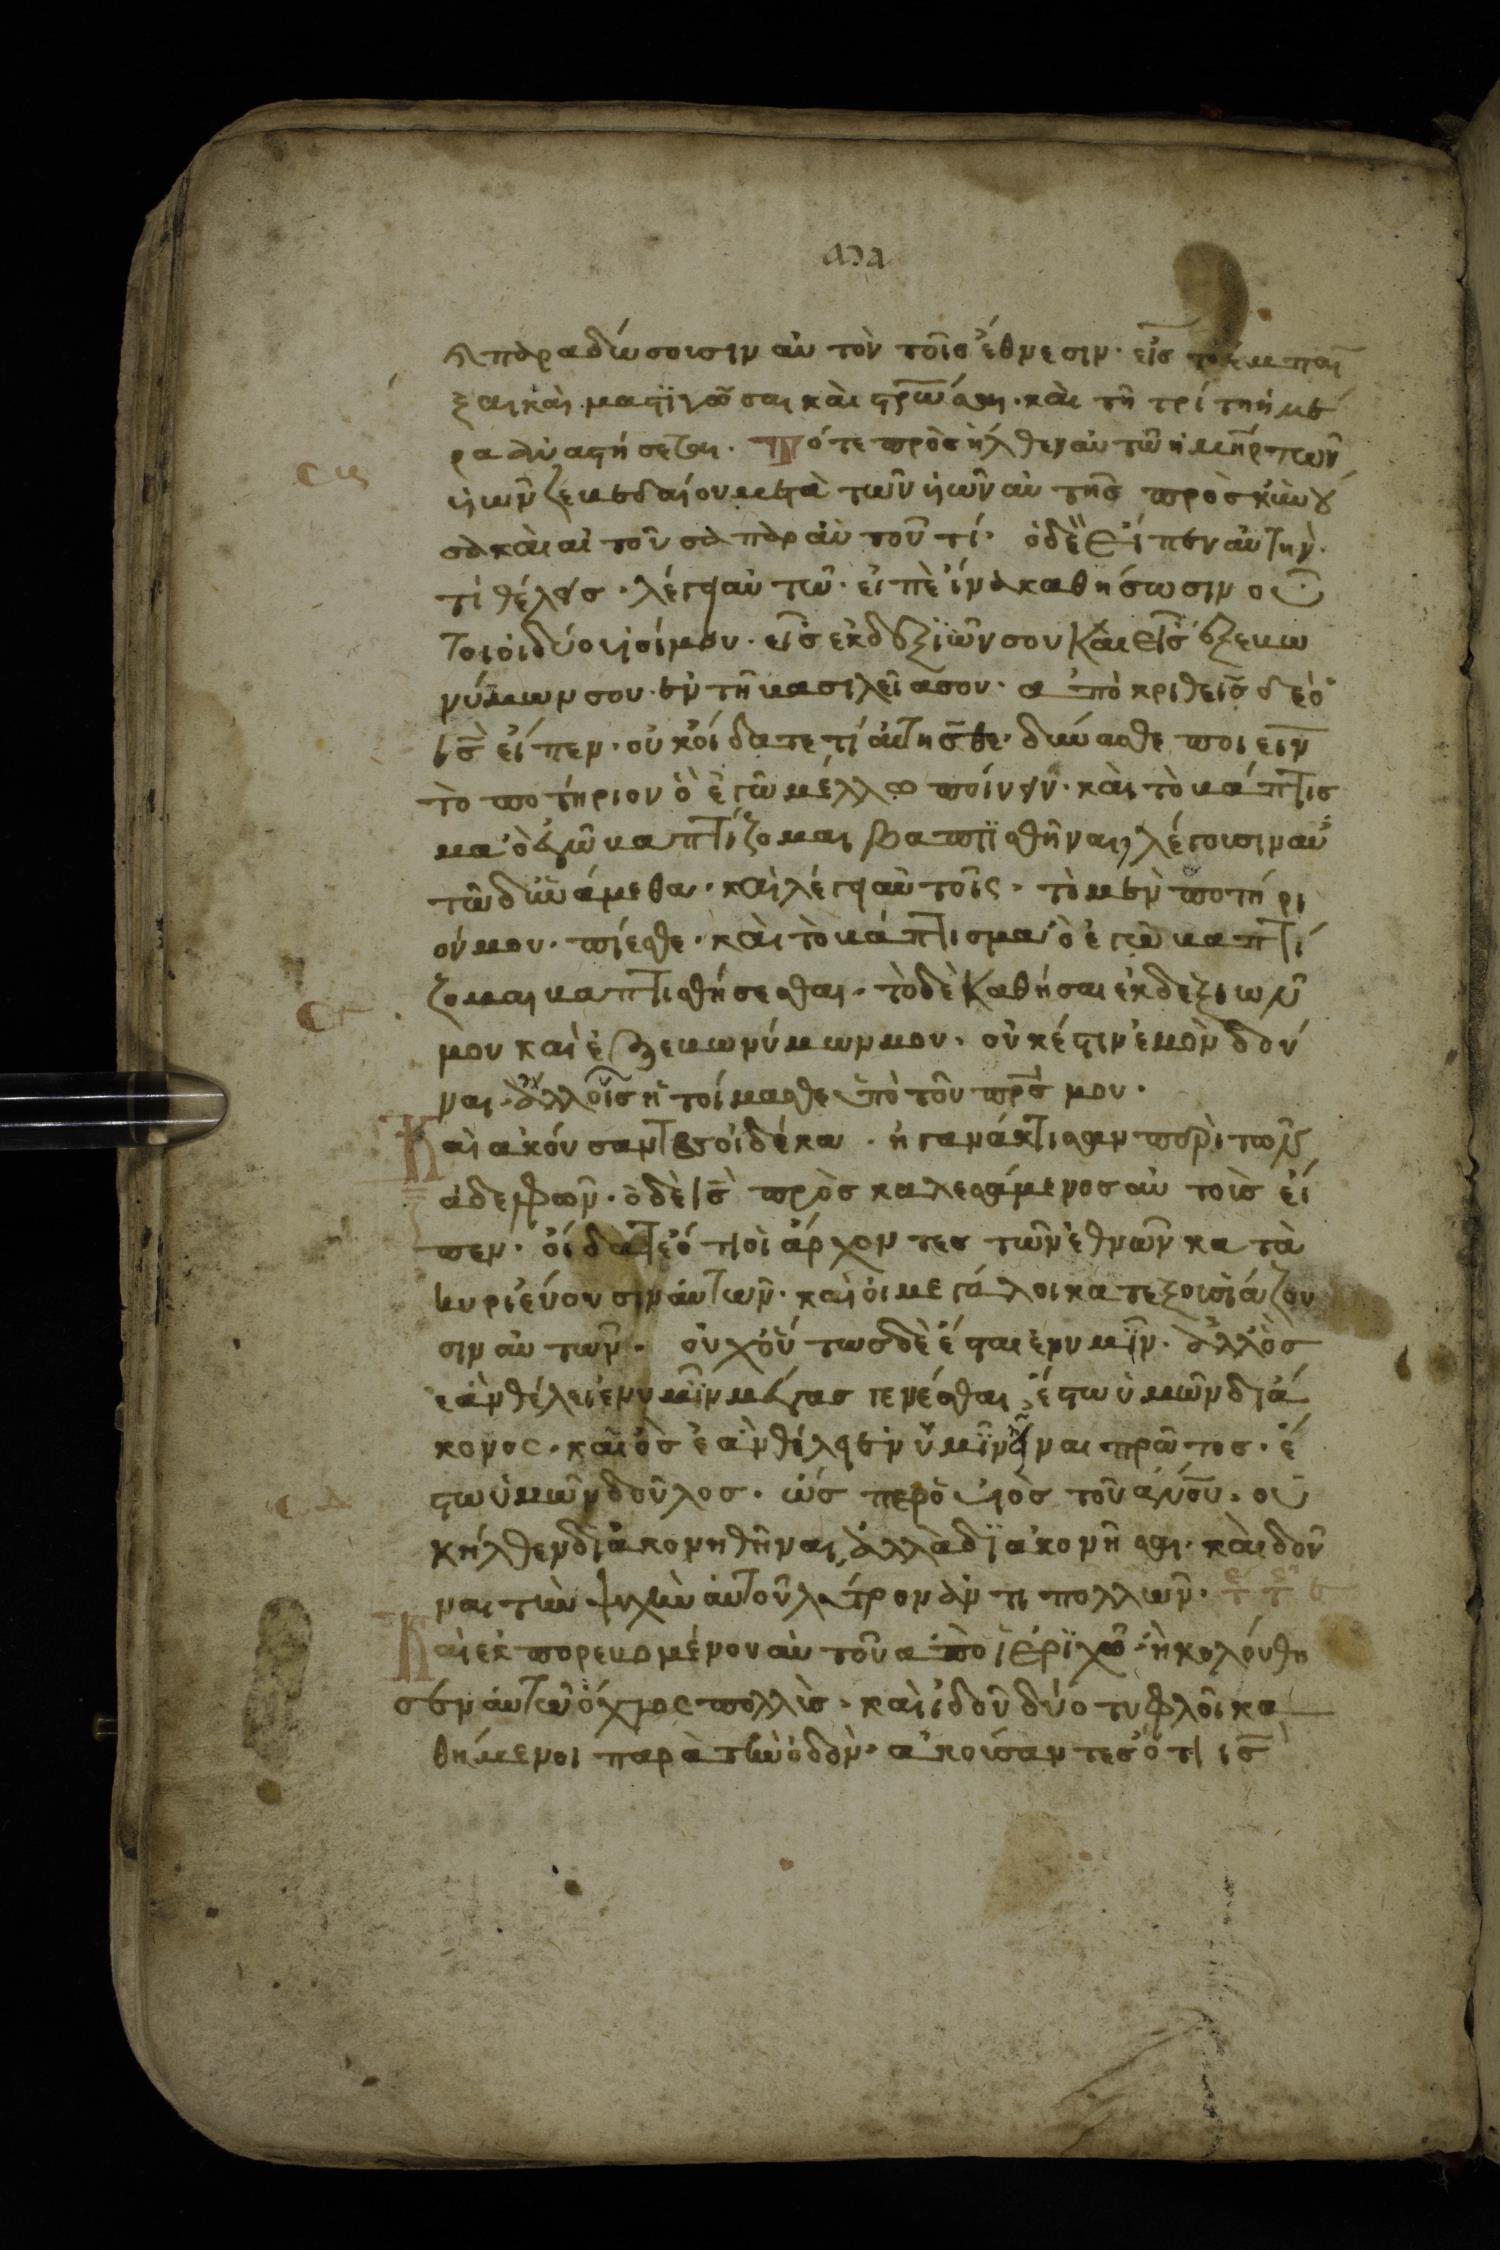 κ παραδώσουσιν αὐτὸν τοῖς ἔθνεσιν· εἰς τὸ ἐμπαῖ
ξαι καὶ μαστϊγῶσαι καὶ στρῶσαι· καὶ τῆ τρίτη ἡμέ
ρα ἀναστήσεται· Τότε πρὸσἦλθεν αὐτῶ ἡ μηρ τῶν
ϋἱῶν ζεβεδαίου μετὰ τῶν ϋἱῶν αὐτῆς προσκυνοῦ
σα καὶ αἰτοῦσα παρ αὐτοῦ τί· ὁ δὲ εἶπεν αὐτὴν·
τί θέλεις· λέγει αὐτῶ· εἰπὲ ἵνα καθήσωσιν οὗ
τοι οἱ δύο ϋἱοί μου· εἷς ἐκ δεξϊῶν σου καὶ εἷς ἐξ εὐω
νύμων σου· ἐν τῆ βασιλεία σου· ἀπὸκριθεὶς δὲ ὁ
ις εἶπεν· οὐκ οἴδατε τί αἰτῆσθε· δύνασθε ποιεῖν
τὸ ποτήριον ὃ ἐγὼ μέλλω πίνειν· καὶ τὸ βάπτισ
μα ὃ ἐγὼ βαπτίζομαι βαπτϊσθῆναι, λέγουσιν αὐ
τῶ δυνάμεθα· καὶ λέγει αὐτοῖς· τὸ μὲν ποτήρι
όν μου· πίεσθε· καὶ τὸ βάπτισμα ὃ ἐγὼ βαπτί
ζομαι βαπτισθήσεσθαι· τὸ δὲ καθῆσαι ἐκ δεξιῶν
μου καὶ ἐξ εὐωνύμων μου· οὐκ ἔστιν ἐμὸν δοῦ
ναι· ἀλλ οἷς ἡτοίμασθε ὑπὸ τοῦ πρς μου·
Καὶ ἀκούσαντες οἱ δέκα· ἠγανάκτισαν περὶ τῶν
ἀδελφῶν· ὁ δὲ ις πρὸσκαλεσάμενος αὐτοὶς εἶ
πεν· οἴδατε ὅτι οἱ ἄρχοντες τῶν ἐθνῶν κατὰ
κυριεύουσιν αὐτῶν· καὶ οἱ μεγάλοι κατεξουσιάζου
σιν αὐτῶν· οὐχ οὕτως δὲ ἔσται ἐν υμῖν· ἀλλ ὃς
ἐὰν θέλει ἐν υμῖν μέγας γενέσθαι, ἔστω ὑμῶν διά
κονος· καὶ ὃς ἐὰν θέλη ἐν ὑμῖν εἶναι πρῶτος· ἔ
στω ὑμῶν δοῦλος· ὥσπερ ὁ ὑιὸς τοῦ ανου· οὐ
κ ἦλθεν διακονηθῆναι, ἀλλὰ διακονῆσαι· καὶ δοῦ
ναι τὴν ψυχὴν αὐτοῦ λύτρον ἀντι πολλῶν·
Καὶ ἐκπορευομένου αὐτοῦ ἀπὸ ἱερϊχῶ· ἠκολούθη
σεν αὐτῶ ὄχλος πολλὺς· καὶ ἰδοῦ δύο τυφλοὶ κα
θήμενοι παρὰ τὴν ὁδὸν· ἀκούσαντες ὅτι ις